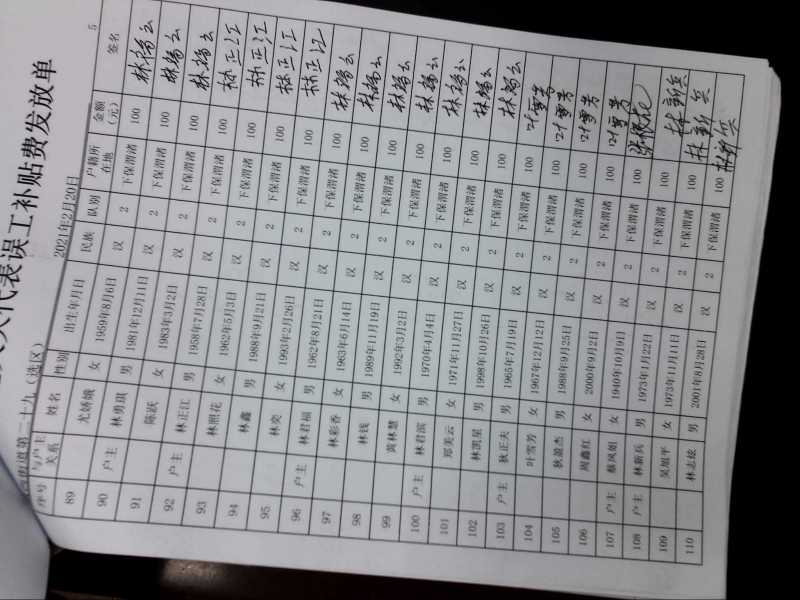 人大代表误工补贴费发放单
街道第二十九（选区） 2021年2月20日 5
序号 与户主关系 姓名 性别 出生年月日 民族 队别 户籍所在地 金额（元） 签名
89 尤娇娥 女 1959年8月6日 汉 2 下保渭渚 100
90 户主 林勇琪 男 1981年12月11日 汉 2 下保渭渚 100
91 陈跃 女 1983年3月2日 汉 2 下保渭渚 100
92 户主 林正江 男 1958年7月28日 汉 2 下保渭渚 100 林正江
93 林照花 女 1962年5月3日 汉 2 下保渭渚 100 林正江
94 林鑫 男 1988年9月21日 汉 2 下保渭渚 100 林正江
95 林奕 女 1993年2月26日 汉 2 下保渭渚 100 林正江
96 户主 林君福 男 1962年8月21日 汉 2 下保渭渚 100
97 林彩香 女 1963年6月14日 汉 2 下保渭渚 100
98 林钱 男 1989年11月19日 汉 2 下保渭渚 100
99 黄林慧 女 1992年3月2日 汉 2 下保渭渚 100
100 户主 林君滨 男 1970年4月4日 汉 2 下保渭渚 100
101 郑美云 女 1971年11月27日 汉 2 下保渭渚 100
102 林凯星 男 1998年10月26日 汉 2 下保渭渚 100
103 户主 狄正夫 男 1965年7月19日 汉 2 下保渭渚 100 叶雪芳
104 叶雪芳 女 1967年12月12日 汉 2 下保渭渚 100 叶雪芳
105 狄盈杰 男 1988年9月25日 汉 2 下保渭渚 100 叶雪芳
106 周鑫红 女 2000年9月2日 汉 2 下保渭渚 100 叶雪芳
107 户主 蔡凤姐 女 1940年10月9日 汉 2 下保渭渚 100
108 户主 林新兵 男 1973年1月22日 汉 2 下保渭渚 100 林新兵
109 吴旭平 女 1973年11月11日 汉 2 下保渭渚 100 林新兵
110 林志炫 男 2001年8月28日 汉 2 下保渭渚 100 林新兵